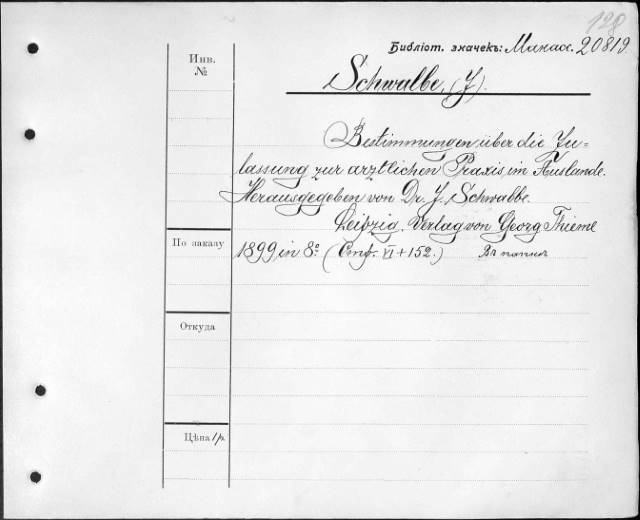 128
Библіот. значекъ: Манас. 20819
Инв.
№
Schwalbe, (J).
Bestimmungen über die Zu-
lassung zur arztlichen Praxis im Auslande.
Herausgegeben von Dr. J. Schwalbe.
Leipzig. Verlag von Georg Thieme
По заказу
1899 in 8° (Стр. VI + 152.) Въ папкѣ
Откуда
Цѣна 1р.